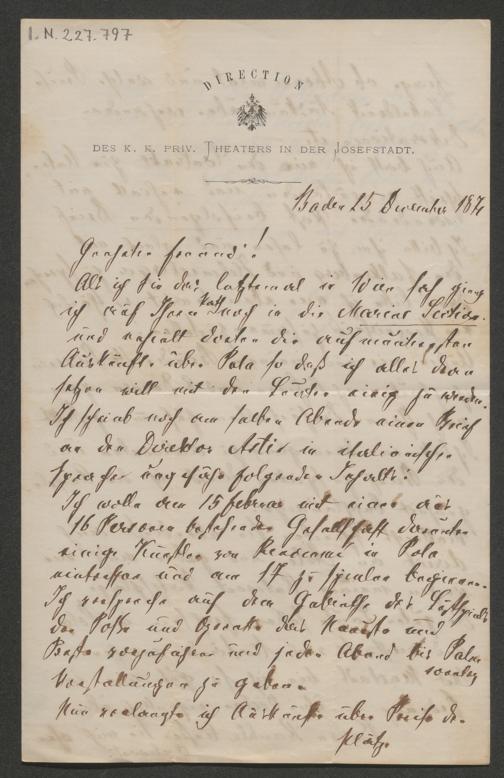 I.N. 227.797
DIRECTION
DES K. K. PRIV. THEATERS IN DER JOSEFSTADT.
Baden 25 December 187
Geehrter Freund!
Als ich Sie das letztemal in Wien sah ging
ich auf Ihren Rath noch in die Marine Section
und erhielt dorten die aufmunternsten
Auskünfte über Pola so daß ich alles dran
setzen will mit den Leuten einig zu werden.
Ich schrieb noch am selben Abende einen Brief
an den Direktor in italienischer
Sprache ungefähr folgenden Inhalts:
Ich wolle am 15 Februar mit einer aus
16 Personen bestehenden Gesellschaft darunter
einige Künstler von Renommé in Pola
eintreffen und am 17 zu spielen beginnen.
Ich verspreche auf dem Gebiethe des Lustspiels
der Posse und Operette das Neueste und
Beste vorzuführen und jeden Abend bis Palm
sonntag
Vorstellungen zu geben.
Nun verlangte ich Auskünfte über Preise der
Plätze